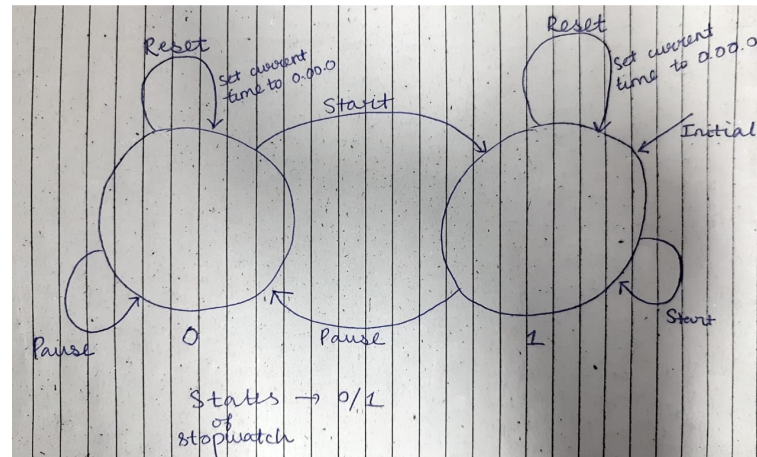 Reset
set current
time to 0.00.0
Start
Reset
set current
time to 0.00.0
Initial
Pause
0
Pause
1
Start
States → 0/1
of
stopwatch